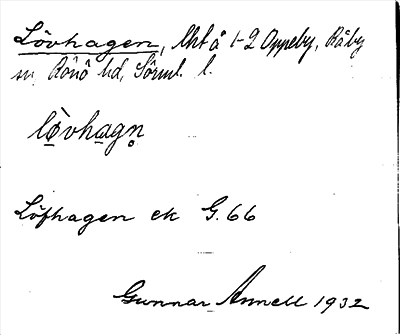 Lövhagen, lht å 1-2 Oppeby, Råby
sn, Rönö hd, Sörml. l.
lò̤vha̲gn̥
Löfhagen ek G. 66
Gunnar Annell 1932